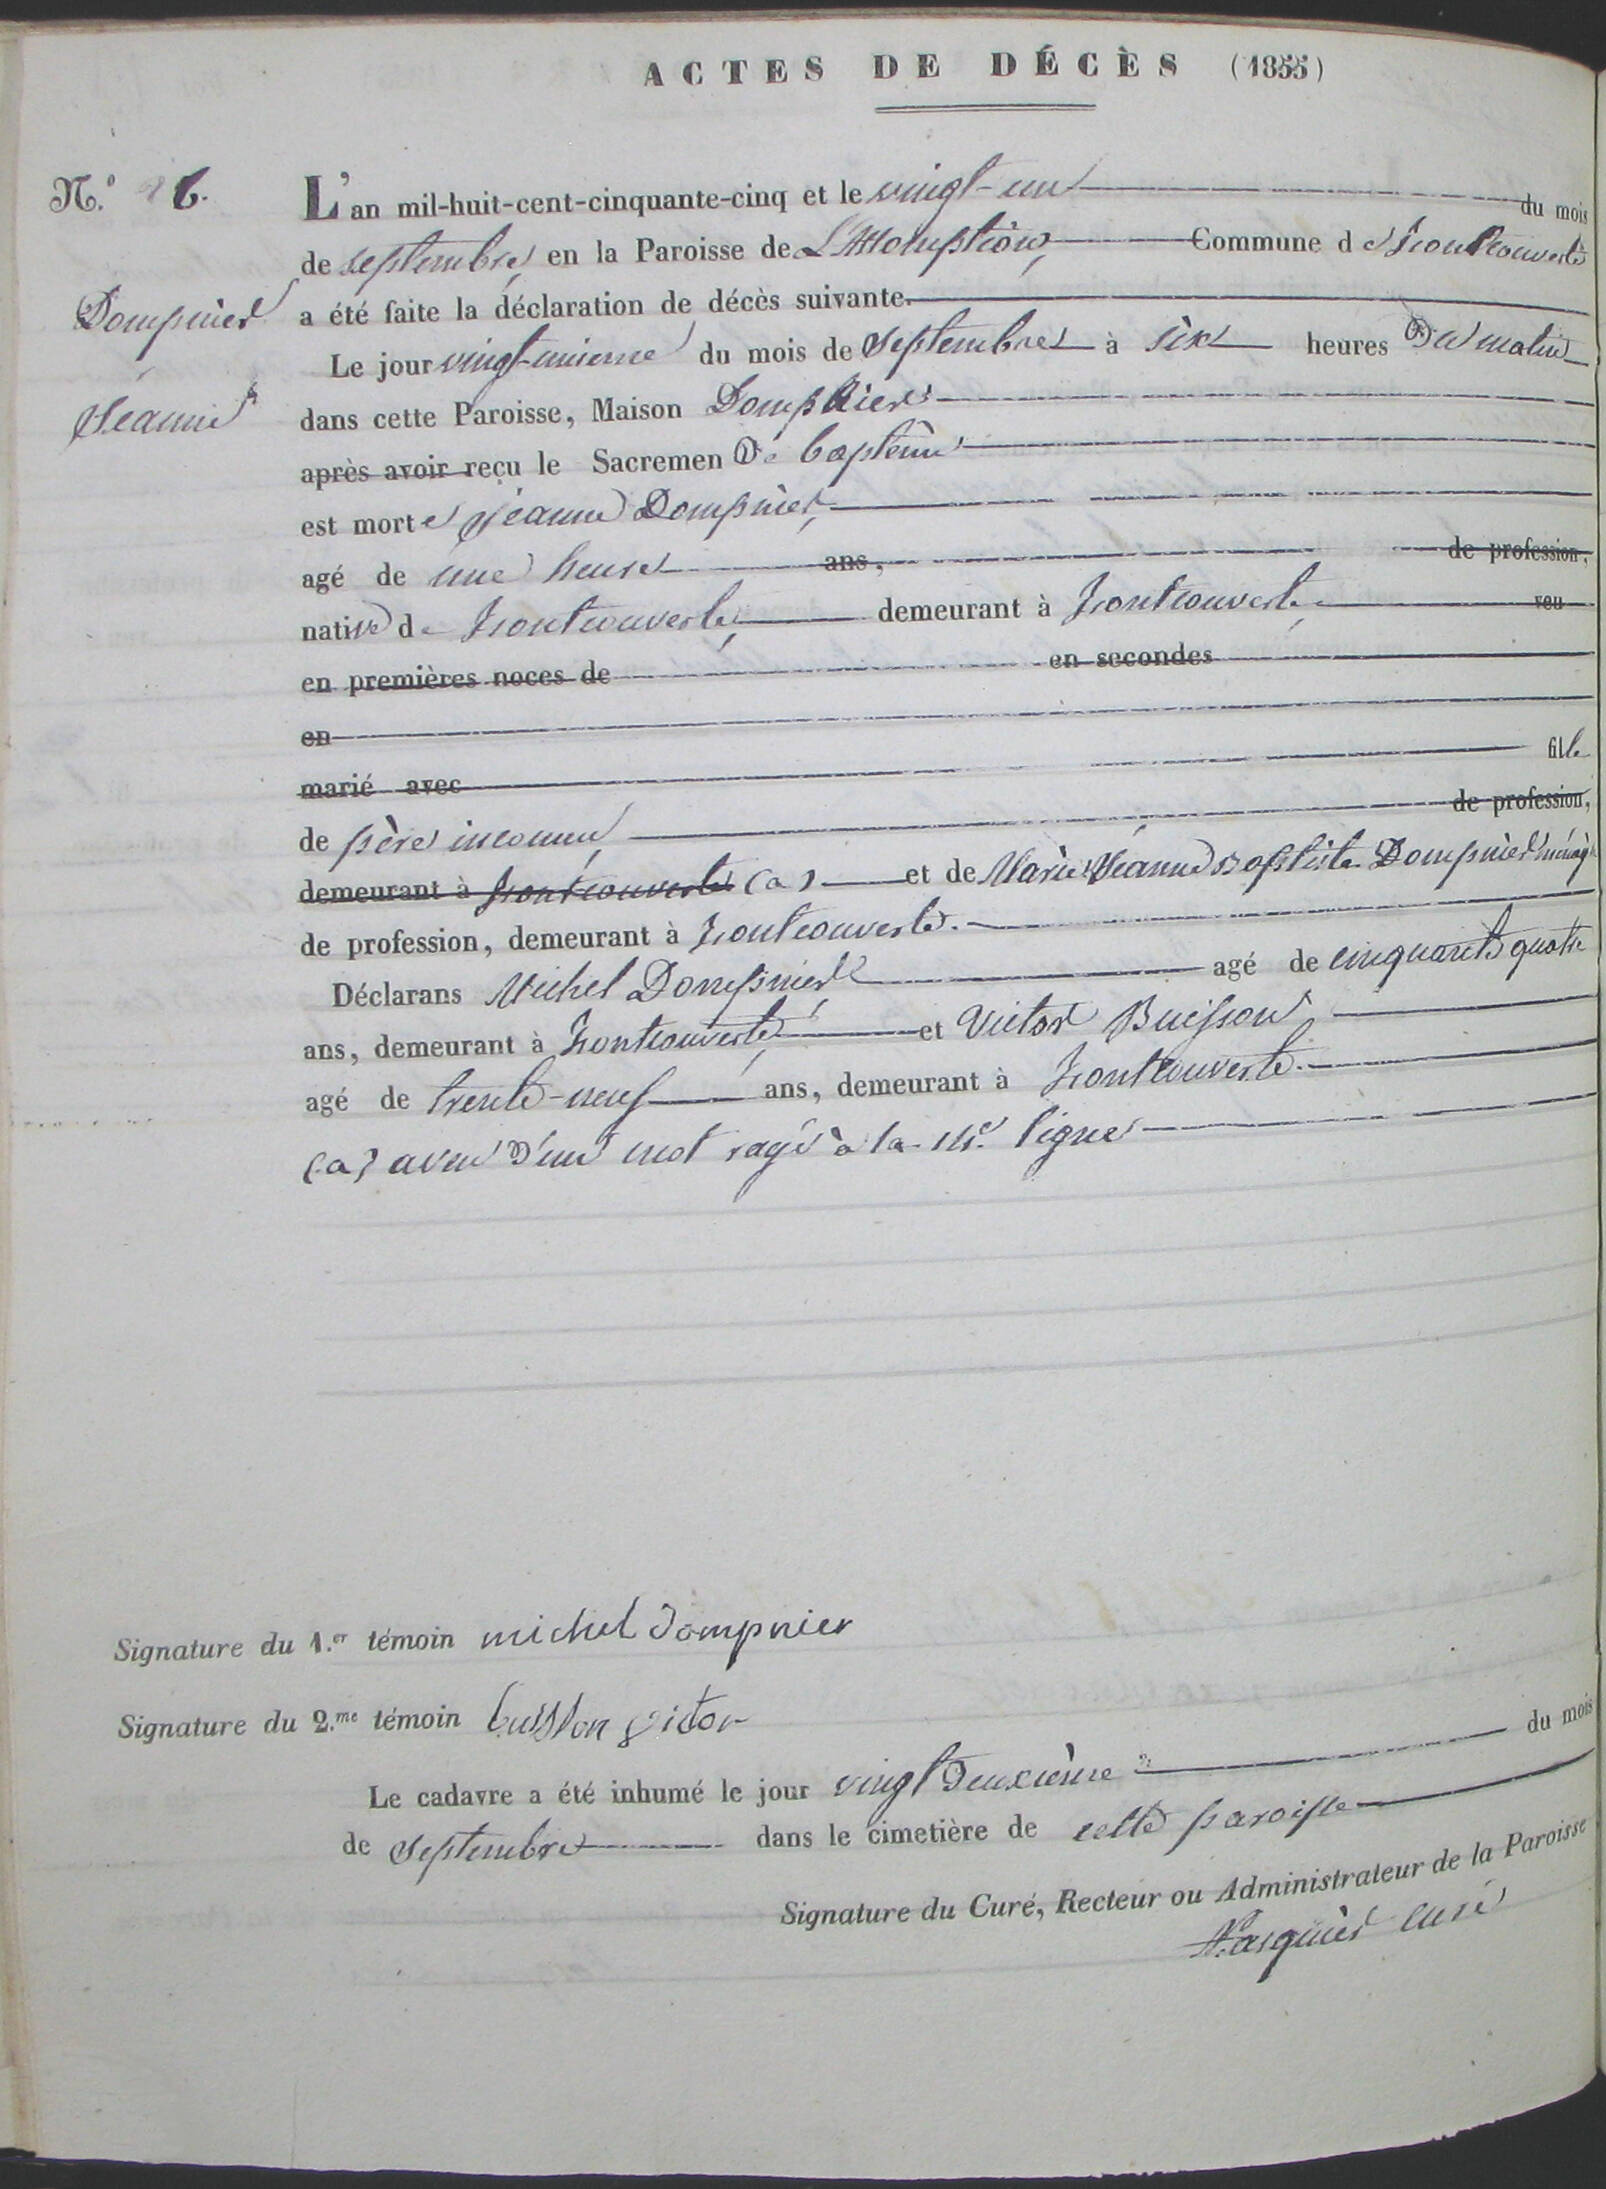 ACTES DE DÉCÈS (1855)
N.º 26.
L'an mil-huit-cent-cinquante-cinq et le vingt-un du mois
de septembre, en la Paroisse de L'Assomption, Commune de Montrouverte
Dompnier
a été faite la déclaration de décès suivante.
Le jour vingt-unieme du mois de septembre à six heures Du matin
Jeanne
dans cette Paroisse, Maison Dompnier
après avoir reçu le Sacremen De baptême
est morte Jeanne Dompnier,
agé de une heure ans, de profession,
native de demeurant à veu
en premières noces de en secondes
en
marié avec fille
de père inconnu, de profession,
demeurant à (a) et de Marie Jeanne Baptiste Dompnier ménagère
de profession, demeurant à
Déclarans Michel Dompnier agé de cinquante quatre
ans, demeurant à et Victor Buisson
agé de trente-neuf ans, demeurant à
(a) aveu D'un mot rayé à la ligne
Signature du 1.er témoin michel dompnier
Signature du 2.me témoin buisson victor
Le cadavre a été inhumé le jour vingt Deuxième du mois
de septembre dans le cimetière de cette paroisse
Signature du Curé, Recteur ou Administrateur de la Paroisse
curé